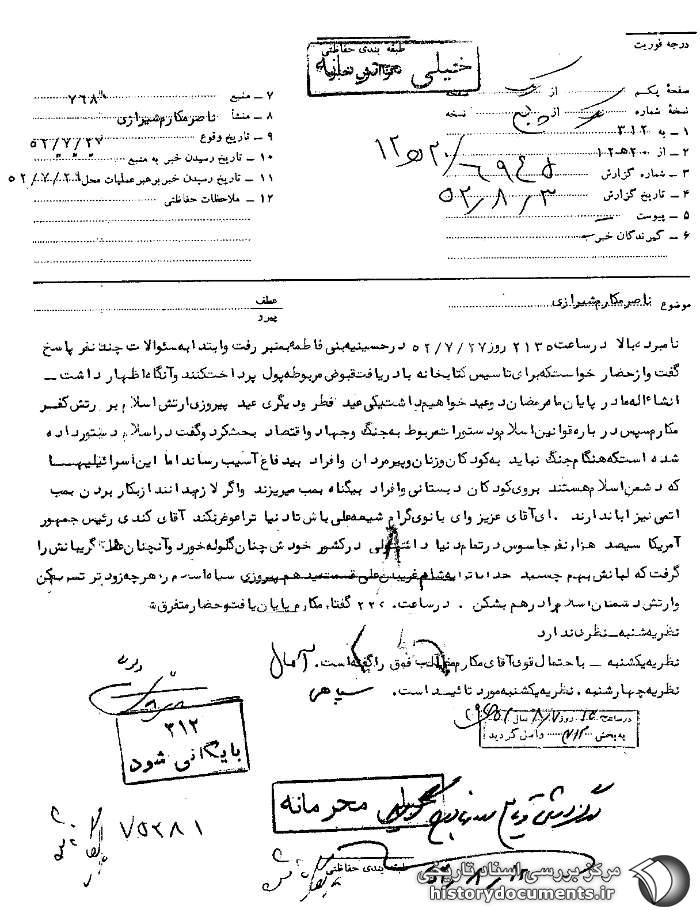 درجه فوریت
طبقه بندی حفاظتی
خیلی محرمانه
صفحهٔ یکم از صفحه
نسخهٔ شماره از پنج نسخه
۱ ـ به ۳۱۲
۲ ـ از ۱۲ه۲۰
۳ ـ شماره گزارش
۴ ـ تاریخ گزارش ۵۲/۸/۳
۵ ـ پیوست
۶ ـ گیرندگان خبر
۷ ـ منبع ۷۶۸۸
۸ ـ منشأ ناصر مکارم شیرازی
۹ ـ تاریخ وقوع ۵۲/۷/۲۷
۱۰ ـ تاریخ رسیدن خبر به منبع
۱۱ ـ تاریخ رسیدن خبر برهبر عملیات محل ۵۲/۷/۲۹
۱۲ ـ ملاحظات حفاظتی
موضوع ناصر مکارم شیرازی
عطف
پیرو
نامبرده بالا در ساعت ۲۱۳۵ روز ۵۲/۷/۲۷ در حسینیه بنی فاطمه بمنبر رفت و ابتدا به سئوالات چند نفر پاسخ
گفت و از حضار خواست که برای تاسیس کتابخانه با دریافت قبوض مربوطه پول پرداخت کنند و آنگاه اظهار داشت ـ
انشاءاله ما در پایان ماه رمضان دو عید خواهیم داشت یکی عید فطر و دیگری عید پیروزی ارتش اسلام بر ارتش کفر
مکارم سپس در باره قوانین اسلام و دستورات مربوط به جنگ و جهاد و اقتصاد بحث کرد و گفت در اسلام دستور داده
شده است که هنگام جنگ نباید به کودکان و زنان و پیرمردان و افراد بیدفاع آسیب رساند اما این اسرائیلیها
که دشمن اسلام هستند بروی کودکان دبستانی و افراد بیگناه بمب میریزند و اگر لازم بدانند از بکار بردن بمب
اتمی نیز ابا ندارند . ای آقای عزیز وای بانوی گرام شیعه علی باش تا دنیا ترا عوض نکند آقای کندی رئیس جمهور
آمریکا سیصد هزار نفر جاسوس در تمام دنیا داشت ولی در کشور خودش چنان گلوله خورد و آنچنان گریبانش را
گرفت که لبانش بهم چسبید خداما سپاه اسلام را هر چه زودتر
وارتش دشمنان اسلام را در هم بشکن . در ساعت ۲۲۰ گفتار مکارم پایان یافت و حضار متفرق شدند
نظریه شنبه ـ نظری ندارد
نظریه یکشنبه ـ با احتمال قوی آقای مکارم مطالب فوق را گفته است. آمال
نظریه چهارشنبه . نظریه یکشنبه مورد تائید است . سپاهی
در ساعت ۱۵ روز ۸/۷ سال
به بخش ۳۱۲ واصل گردید
۳۱۲
بایگانی شود
۷۵۲۸۱
خیلی محرمانه
طبقه بندی حفاظتی
مرکز بررسی اسناد تاریخی
historydocuments.ir